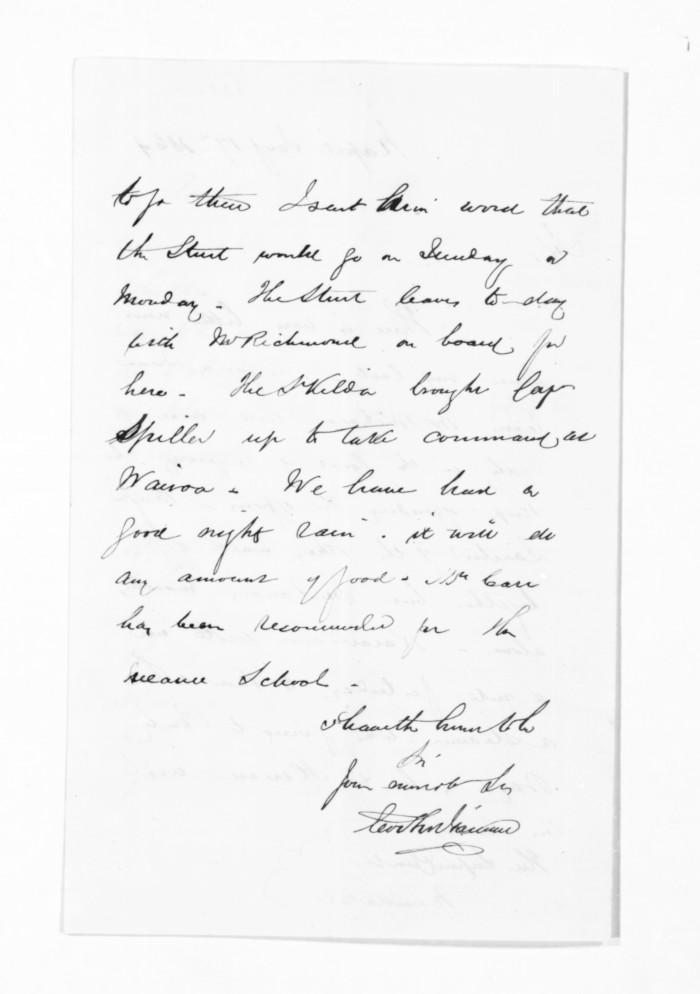 to go there I sent him word that
the Sturt would go on Sunday or
Monday. The Sturt leaves to-day
with Mr Richmond on board for
here. The St Kilda brought Cap
Spiller up to take command at
Wairoa. We have had a
good night rain. it will do
any amount of good. Mr Carr
has been recommended for the
Meanee School.
I have the honor to be
Sir
Your Svt